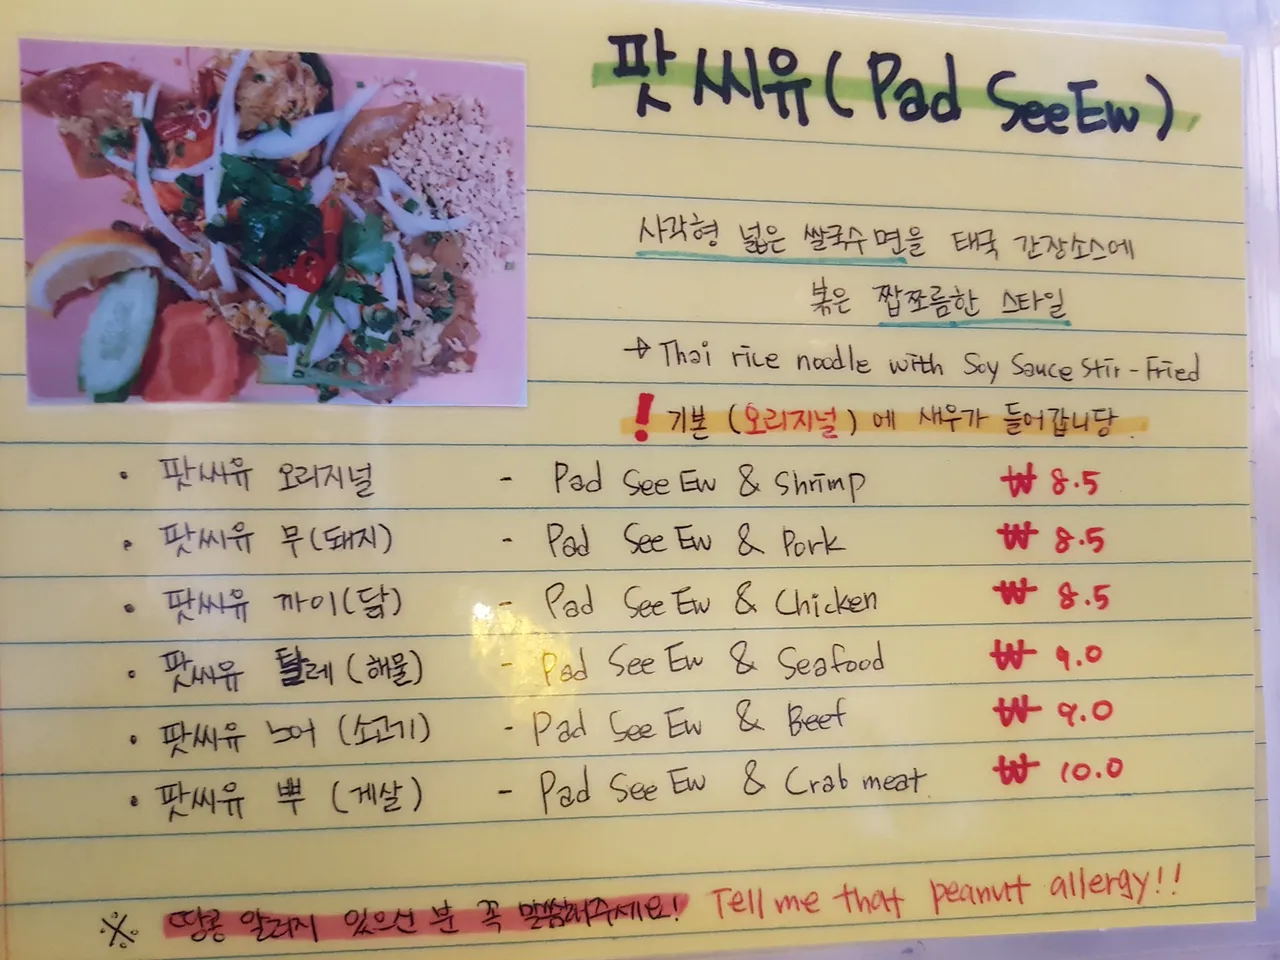 팟씨유(Pad See Ew)
사각형 넓은 쌀국수 면을 태국 간장소스에
볶은 짭쪼름한 스타일
→ Thai rice noodle with Soy Sauce Stir-Fried
! 기본 (오리지널)에 새우가 들어갑니당.
• 팟씨유 오리지널 - Pad See Ew & Shrimp ₩ 8.5
• 팟씨유 무(돼지) - Pad See Ew & Pork ₩ 8.5
• 팟씨유 까이(닭) - Pad See Ew & Chicken ₩ 8.5
• 팟씨유 탈레(해물) - Pad See Ew & Seafood ₩ 9.0
• 팟씨유 느어 (소고기) - Pad See Ew & Beef ₩ 9.0
• 팟씨유 뿌 (게살) - Pad See Ew & Crab meat. ₩ 10.0
※ 땅콩 알러지 있으신 분 꼭 말씀해주세요! Tell me that peanut allergy!!